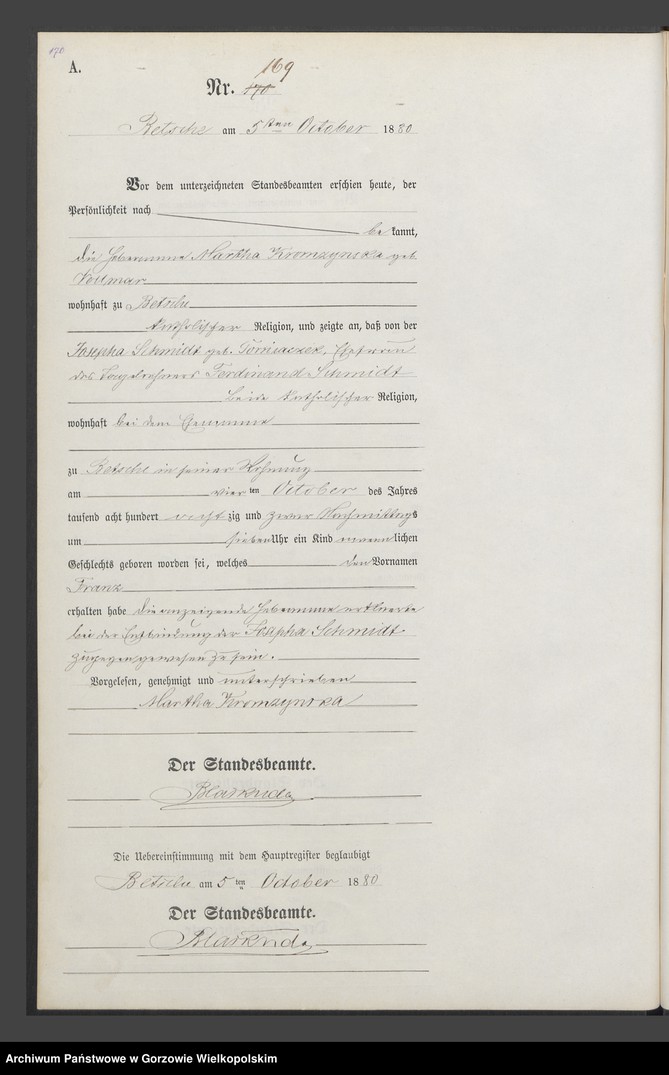 170
A.
169
Nr. 170
Betsche am 5ten October 1880
Vor dem unterzeichneten Standesbeamten erschien heute, der
Persönlichkeit nach
bekannt,
die Hebeamme Martha Kromzynska geb
Vollmar
wohnhaft zu Betsche
katholischer Religion, und zeigte an, daß von der
Josepha Schmidt geb. Ehefrau
des Ferdinand Schmidt
beide katholischer Religion,
wohnhaft bei dem Ehemanne
zu Betsche in seiner Wohnung
am vier ten October des Jahres
tausend acht hundert achtzig und zwar Nachmittags
um sieben Uhr ein Kind maennlichen
Geschlechts geboren worden sei, welches den Vornamen
Franz
erhalten habe die anzeigende Hebeamme erklaerte
bei der Entbindung der Josepha Schmidt
zugegen gewesen zu sein.
Vorgelesen, genehmigt und unterschrieben
Martha Kromzynska
Der Standesbeamte.
Die Uebereinstimmung mit dem Hauptregister beglaubigt
Betsche am 5 ten October 1880
Der Standesbeamte.
Archiwum Państwowe w Gorzowie Wielkopolskim